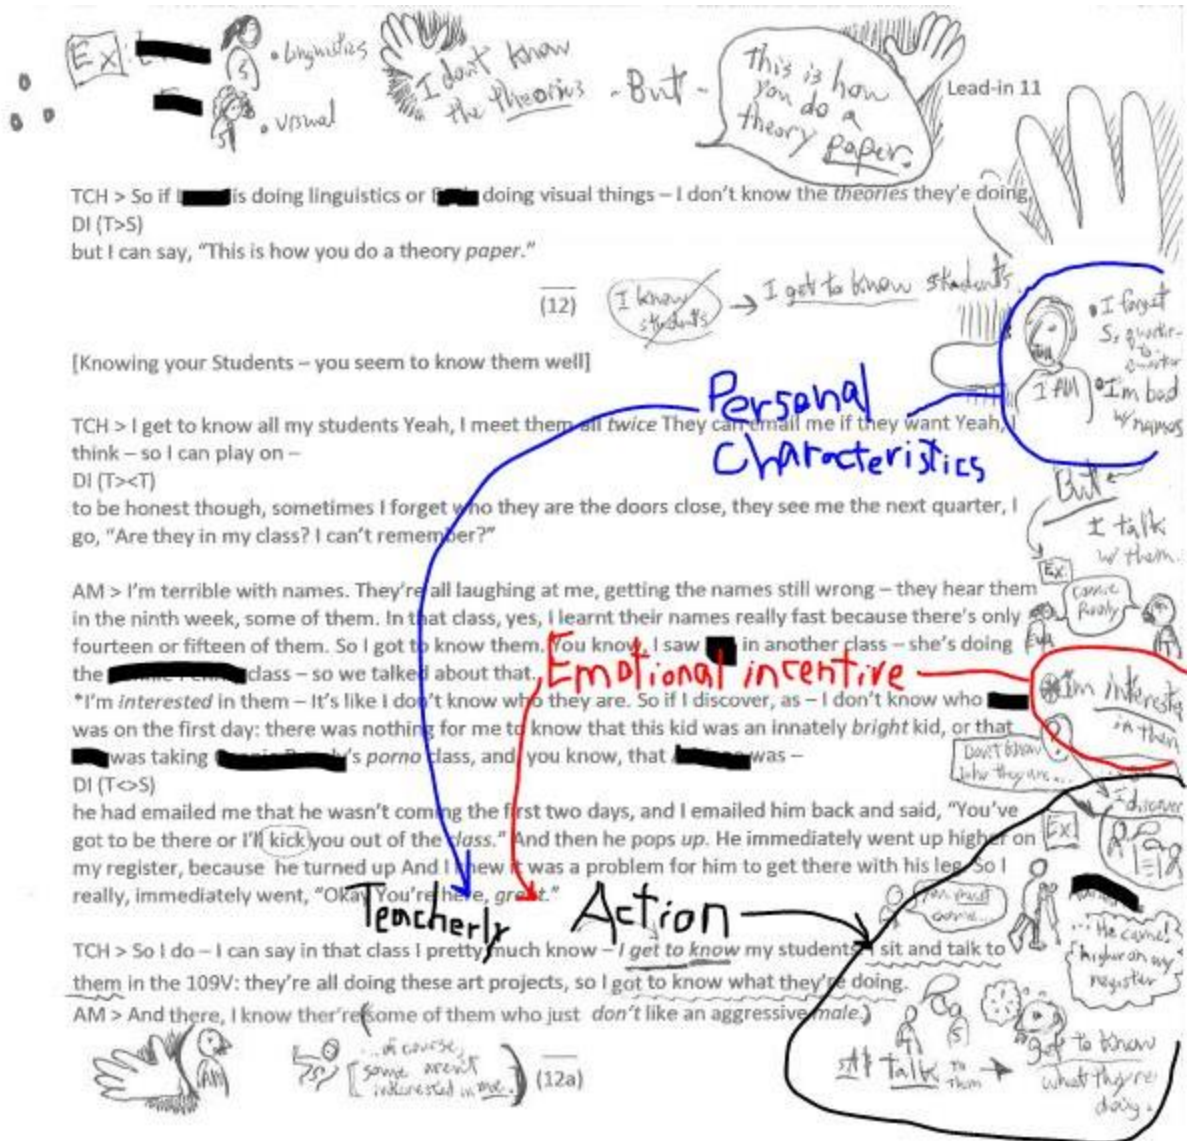 Ex:
• Linguistics
• visual
I don't know
the theories
- But -
This is how
you do a
theory paper.
Lead-in 11
TCH > So if is doing linguistics or doing visual things – I don't know the theories they'e doing,
DI (T>S)
but I can say, "This is how you do a theory paper."
(12)
I know
students
→ I get to know students.
[Knowing your Students – you seem to know them well]
• I forget
Ss quarter-
to-
quarter
• I'm bad
w/ names
I AM
Personal
Characteristics
TCH > I get to know all my students Yeah, I meet them all twice They can email me if they want Yeah, I
think – so I can play on –
DI (T><T)
to be honest though, sometimes I forget who they are the doors close, they see me the next quarter, I
go, "Are they in my class? I can't remember?"
But
I talk
w/ them.
Ex:
AM > I'm terrible with names. They're all laughing at me, getting the names still wrong – they hear them
in the ninth week, some of them. In that class, yes, I learnt their names really fast because there's only
fourteen or fifteen of them. So I got to know them. You know, I saw in another class – she's doing
the class – so we talked about that.
Emotional incentive
I'm interested
in them
*I'm interested in them – It's like I don't know who they are. So if I discover, as – I don't know who
was on the first day: there was nothing for me to know that this kid was an innately bright kid, or that
was taking 's porno class, and, you know, that was –
Don't know
who they are...
I discover
DI (T<>S)
he had emailed me that he wasn't coming the first two days, and I emailed him back and said, "You've
got to be there or I'll kick you out of the class." And then he pops up. He immediately went up higher on
my register, because he turned up And I knew it was a problem for him to get there with his leg. So I
really, immediately went, "Okay You're here, great."
Ex
You must
come...
... He came!
higher on my
register
Teacherly Action
TCH > So I do – I can say in that class I pretty much know – I get to know my students I sit and talk to
them in the 109V: they're all doing these art projects, so I got to know what they're doing.
AM > And there, I know ther're some of them who just don't like an aggressive male.)
AM
... of course,
some aren't
interested in me.
(12a)
sit talk to
them →
get to know
what they're
doing.